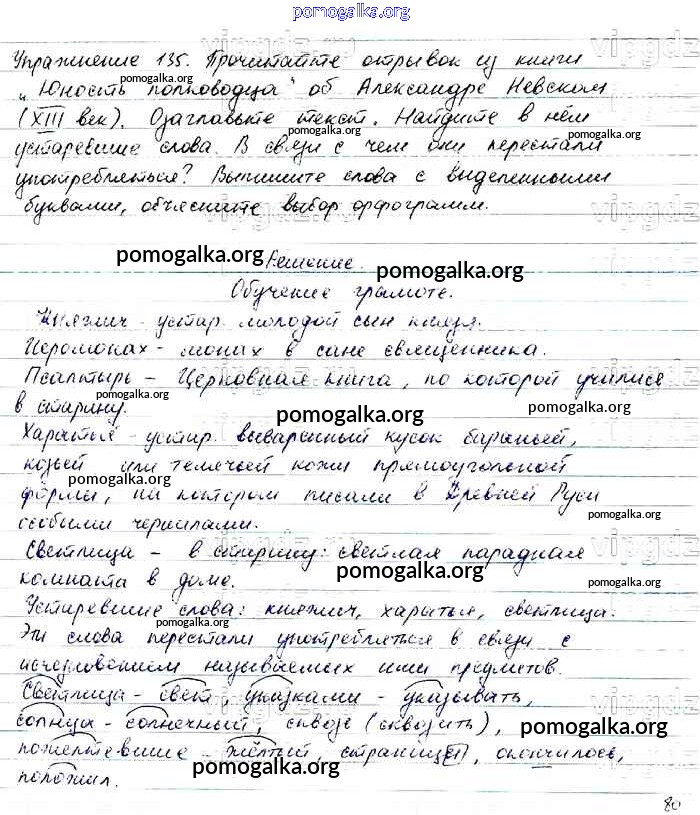 pomogalka.org
Упражнение 135. Прочитайте отрывок из книги
pomogalka.org
„Юность полководца" об Александре Невском
pomogalka.org
(XIII век). Озаглавьте текст. Найдите в нём
pomogalka.org
устаревшие слова. В связи с чем они перестали
употребляться? Выпишите слова с выделенными
буквами, объясните выбор орфограмм.
pomogalka.org
Решение.
pomogalka.org
Обучение грамоте.
Княжич - устар. молодой сын князя.
Иеромонах - монах в сане священника.
Псалтырь - Церковная книга, по которой учились
в старину.
pomogalka.org
pomogalka.org
pomogalka.org
Харатья - устар. вываренный кусок бараньей,
козьей или телячьей кожи прямоугольной
pomogalka.org
формы, на котором писали в Древней Руси
pomogalka.org
особыми чернилами.
Светлица - в старину: светлая парадная
комната в доме.
pomogalka.org
pomogalka.org
Устаревшие слова: княжич, харатья, светлица.
Эти слова перестали употребляться в связи с
исчезновением называемых ими предметов.
Светлица - свет, указками - указывать,
солнца - солнечный, сквозь (сквозить),
pomogalka.org
пожелтевшие - жёлтый, страниц(ы), окончилось,
положил.
pomogalka.org
80